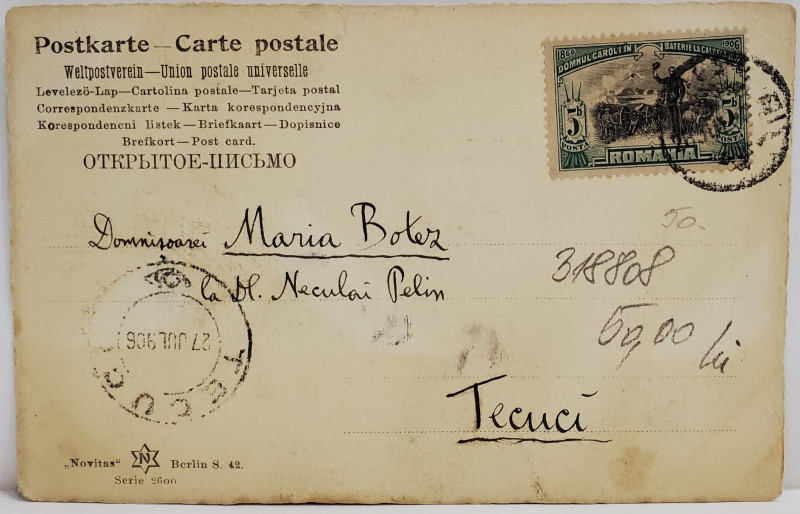 Postkarte — Carte postale
Weltpostverein—Union postale universelle
Levelezö-Lap—Cartolina postale—Tarjeta postal
Correspondenzkarte — Karta korespondencyjna
Korespondencni listek—Briefkaart—Dopisnice
Brefkort—Post card.
ОТКРЫТОЕ-ПИСЬМО
1866 1906
DOMNUL CAROL I IN BATERIE LA CALAFAT 1877
5 B 5 B
POSTA ROMANIA
Domnisoarei Maria Botez
la Dl. Neculai Pelin
Tecuci
50.
318808
50,00 lei
TECUCI
27 JUL 906
„Novitas" N Berlin S. 42.
Serie 2600